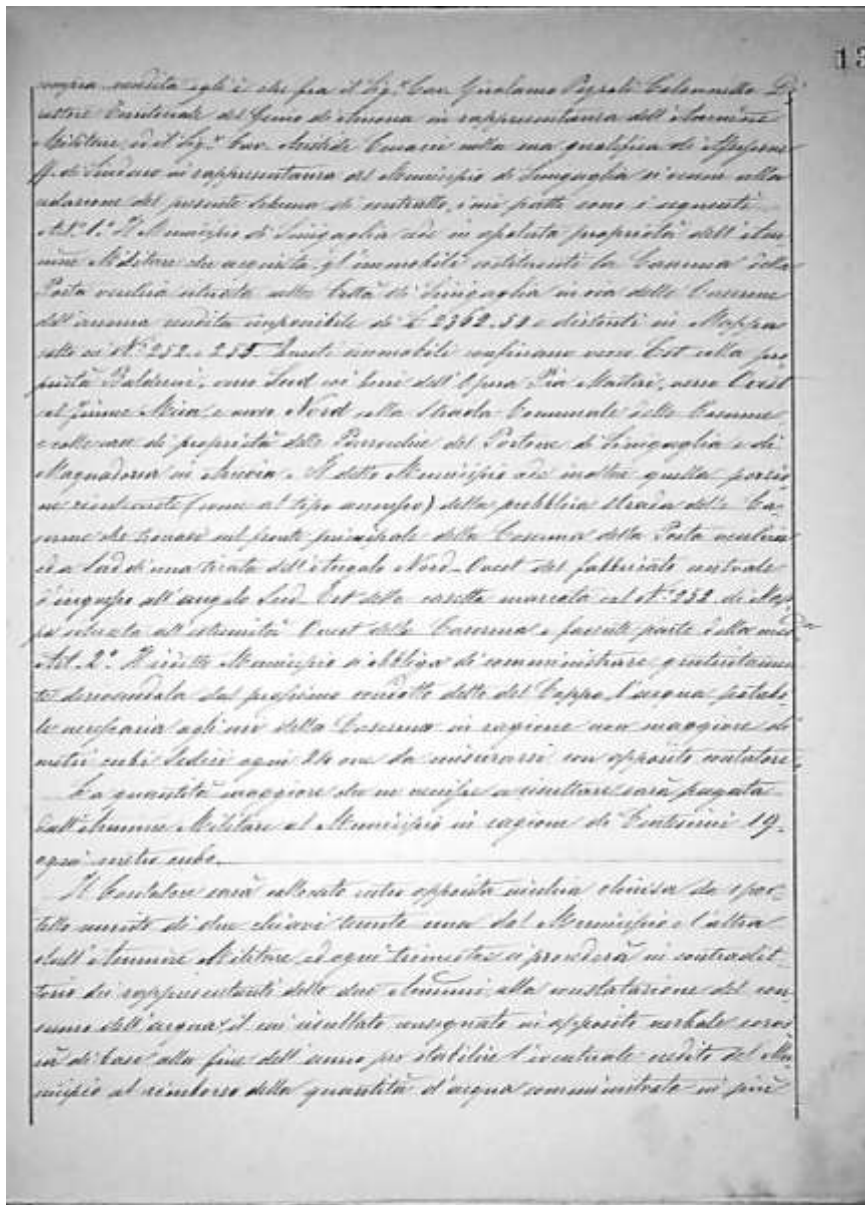 13
compra vendita egli è che fra il Sig.r Cav. Girolamo Colonnello Di
rettore Territoriale del Genio di Ancona in rappresentanza dell'Ammine
Militare, ed il Sig.r Cav. Aristide nella sua qualifica di Assessore
ff. di Sindaco in rappresentanza del Municipio di Sinigaglia si venne alla
del presente Schema di contratto, i cui patti sono i seguenti
Art. 1.° Il Municipio di Sinigaglia cede in assoluta proprietà dell'Am
mine Militare che acquista, gl'immobili costituenti la Caserma della
Posta vecchia situata nella Città di Sinigaglia in via delle Caserme
dell'annua rendita imponibile di L 2362.50 e distinti in Mappa
sotto ai N.i 252 e 255. Questi immobili confinano verso Est colla pro
prietà Balducci, verso Sud coi beni dell'Opera Pia Mastai, verso Ovest
col fiume Misa, e verso Nord colla Strada Comunale delle Caserme
e colle case di proprietà delle Parrocchie del Portone di Sinigaglia e di
in Arcevia. Il detto Municipio cede inoltre quella porzio
ne rientrante (come al tipo annesso) della pubblica strada delle Ca
serme che trovasi sul fronte principale della Caserma della Posta vecchia
ed a Sud di una tirata dell'Angolo Nord-Ovest del fabbricato centrale
d'ingresso all'angolo Sud-Est della casetta marcata col N.° 252 di Map
pa situata all'estremità Ovest della Caserma e facente parte della
Art. 2.° Il Municipio si obbliga di somministrare gratuitamen
te derivandola dal prossimo condotto detto del Cappo, l'acqua potabi
le necessaria agli usi della Caserma in ragione non maggiore di
metri cubi Sedici ogni 24 ore da misurarsi con apposito contatore.
La quantità maggiore che ne venisse a risultare sarà pagata
dall'Ammine Militare al Municipio in ragione di Centesimi 19.
ogni metro cubo.
Il Contatore sarà collocato entro apposita nicchia chiusa da spor-
tello munito di due chiavi tenute una dal Municipio e l'altra
dall'Ammine Militare, ed ogni trimestre si procederà in contradit-
torio dei rappresentanti delle due Ammini alla constatazione del con-
sumo dell'acqua, il cui risultato consegnato in apposito verbale servi
rà di base alla fine dell'anno per stabilire l'eventuale credito del Mu
nicipio al rimborso della quantità d'acqua somministrata in più